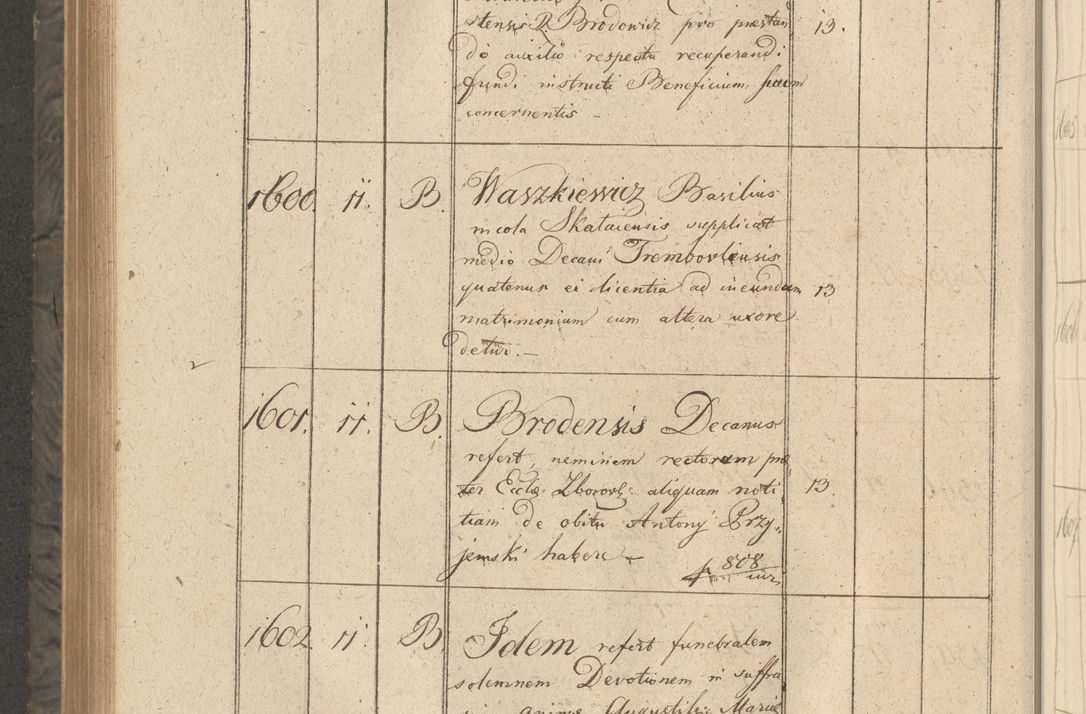 stensis R Brodowicz pro præstan 13.
do auxilio respectu recuperandi
fundi instructi Beneficium suum
concernentis –
1600. 11. B. Waszkiewicz Basilius
incola Skalaiensis supplicat
medio Decani Trembovliensis
quatenus ei licentia ad ineundum 13
matrimonium cum altera uxore
detur. –
1601. 11. B. Brodensis Decanus
refert, neminem rectorum præ
ter Eccle: Zborovs: aliquam noti 13.
tiam de obitu Antonÿ Przy„
jemski habere –
808
1602 11. B. Idem refert funebralem
solemnem Devotionem in suffra
Mariæ